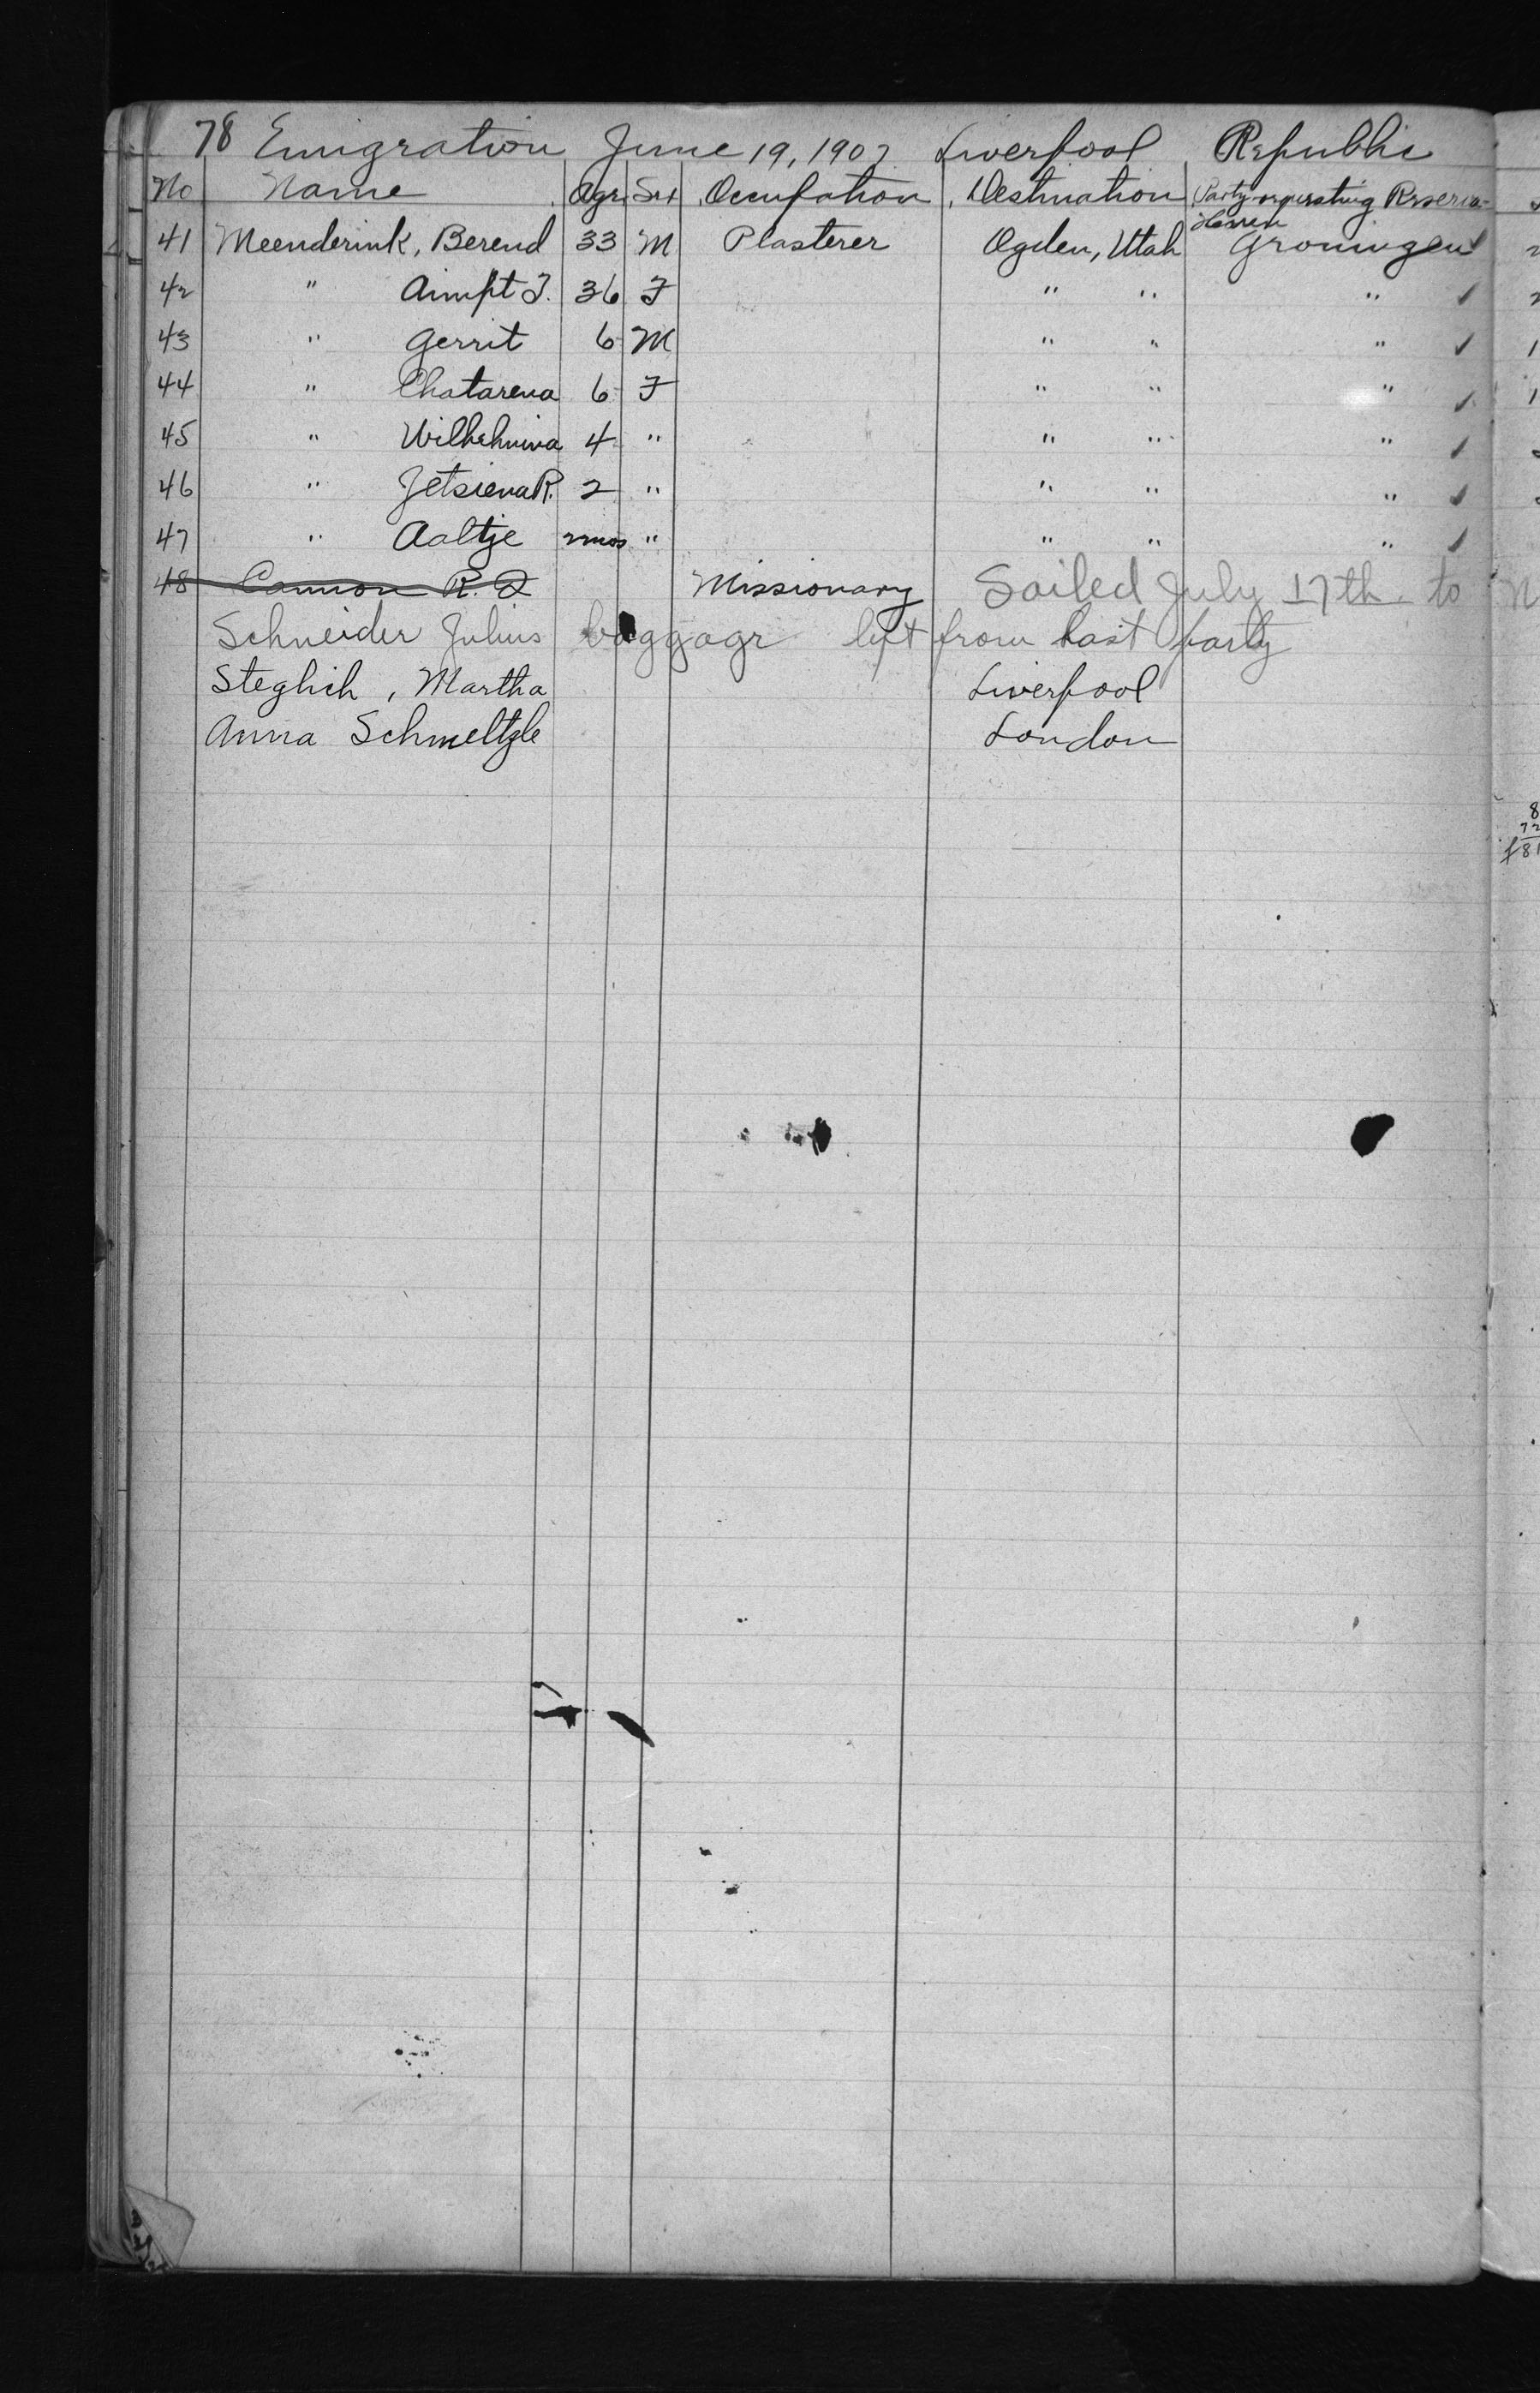 78 Emigration June 19, 1907 Liverpool Republic
No Name Age Sex Occupation Destination Party requesting Reserva-
41 Meenderink, Berend 33 M Plasterer Ogden, Utah Groningen ✓
42 " Aimpt J. 36 F " " " ✓
43 " Gerrit 6 M " " " ✓
44 " Chatarena 6 F " " " ✓
45 " Wilhelmina 4 " " " " ✓
46 " Jetsiena R. 2 " " " " ✓
47 " Aaltje 2 mos " " " " ✓
48 Cannon R. Q Missionary Sailed July 17th to
Schneider Julius baggage left from last party
Steghih, Martha Liverpool
Anna Schmeltzle London